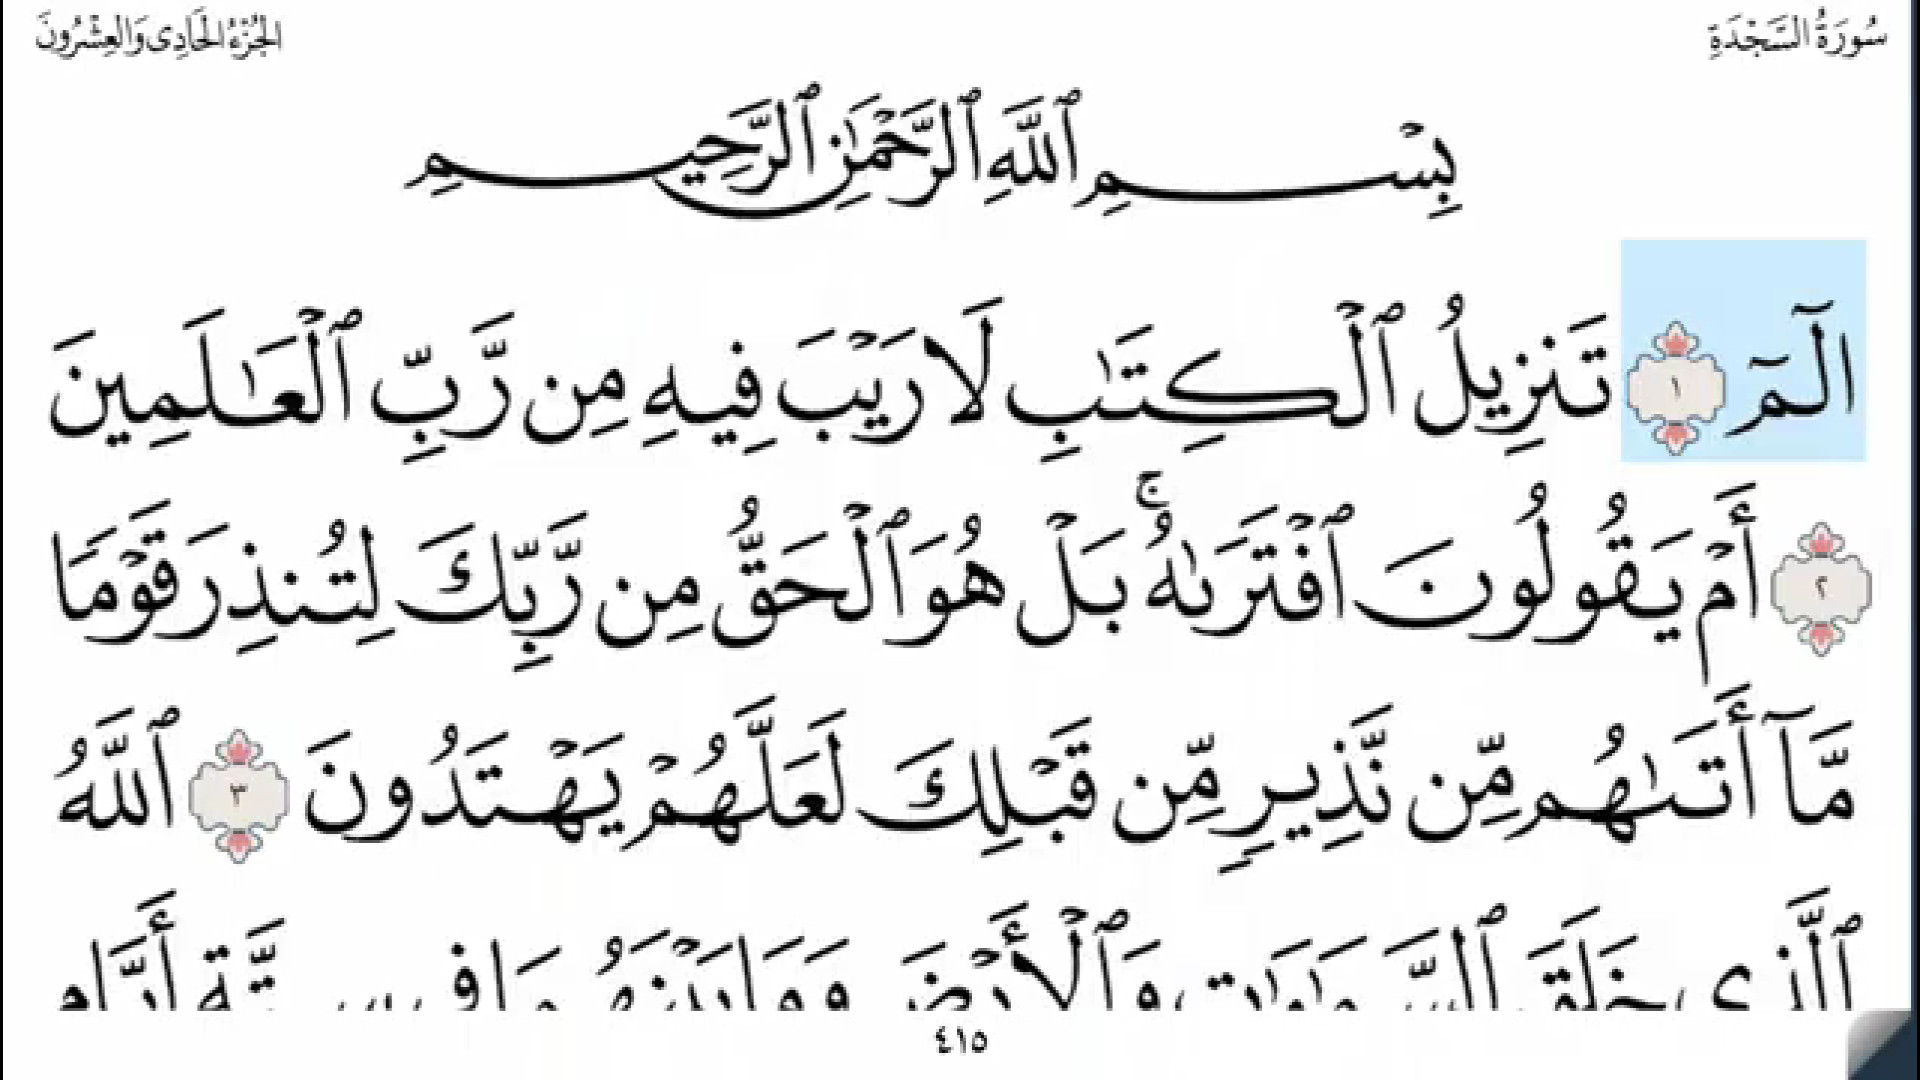 سُورَةُ السَّجْدَةِ
الجُزْءُ الحَادِى وَالعِشْرُونَ
بِسْمِ ٱللَّهِ ٱلرَّحْمَٰنِ ٱلرَّحِيمِ
الٓمٓ ١ تَنزِيلُ ٱلْكِتَٰبِ لَا رَيْبَ فِيهِ مِن رَّبِّ ٱلْعَٰلَمِينَ
٢ أَمْ يَقُولُونَ ٱفْتَرَىٰهُ ۚ بَلْ هُوَ ٱلْحَقُّ مِن رَّبِّكَ لِتُنذِرَ قَوْمًا
مَّآ أَتَىٰهُم مِّن نَّذِيرٍ مِّن قَبْلِكَ لَعَلَّهُمْ يَهْتَدُونَ ٣ ٱللَّهُ
ٱلَّذِى خَلَقَ ٱلسَّمَٰوَٰتِ وَٱلْأَرْضَ وَمَا بَيْنَهُمَا فِى سِتَّةِ أَيَّامٍ
٤١٥